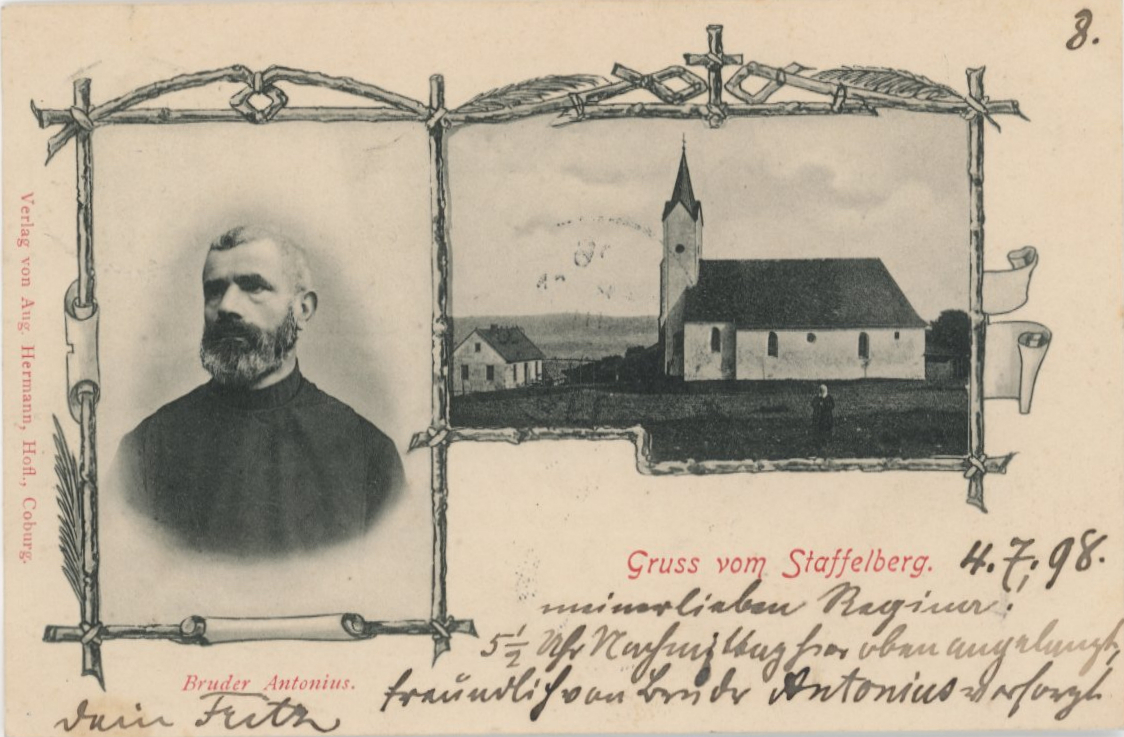 8.
Verlag von Aug. Hermann, Hofl., Coburg.
Gruss vom Staffelberg. 4.7.98.
meiner lieben Regina!
5½ Uhr Nachmittag hier oben angelangt,
freundlich von Bruder Antonius versorgt
Bruder Antonius.
Dein Fritz